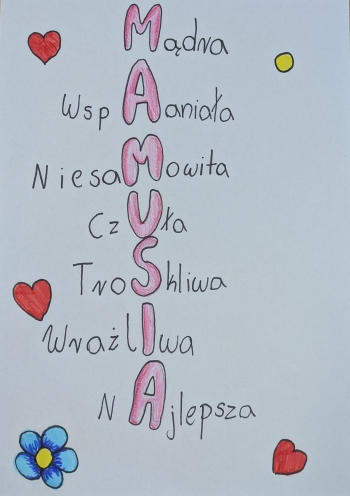 Mądra
WspAaniała
NiesaMowita
CzUła
TroSkliwa
WrażlIwa
NAjlepsza